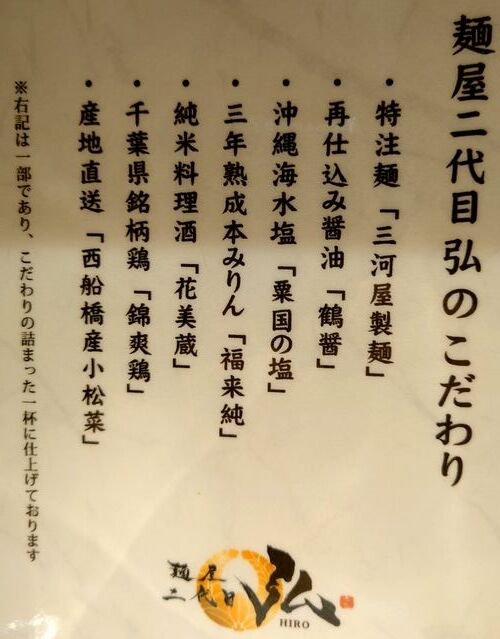 麺屋二代目弘のこだわり
・特注麺「三河屋製麺」
・再仕込み醤油「鶴醤」
・沖縄海水塩「粟国の塩」
・三年熟成本みりん「福来純」
・純米料理酒「花美蔵」
・千葉県銘柄鶏「錦爽鶏」
・産地直送「西船橋産小松菜」
※右記は一部であり、こだわりの詰まった一杯に仕上げております
麺屋
二代目
弘
HIRO